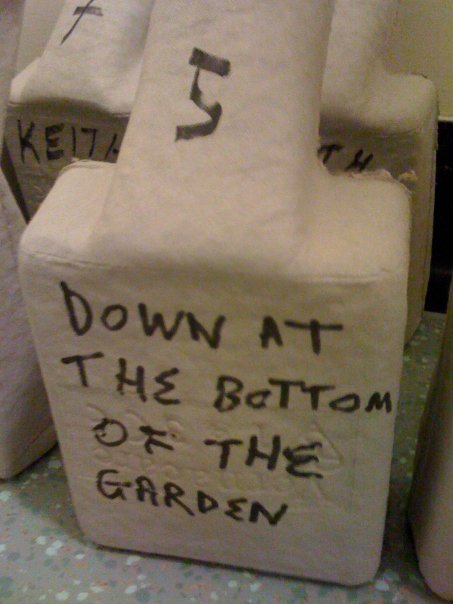 7
KEITH
TH
5
DOWN AT
THE BOTTOM
OF THE
GARDEN